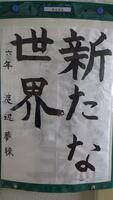 新たな
世界
六年 渡辺夢稀